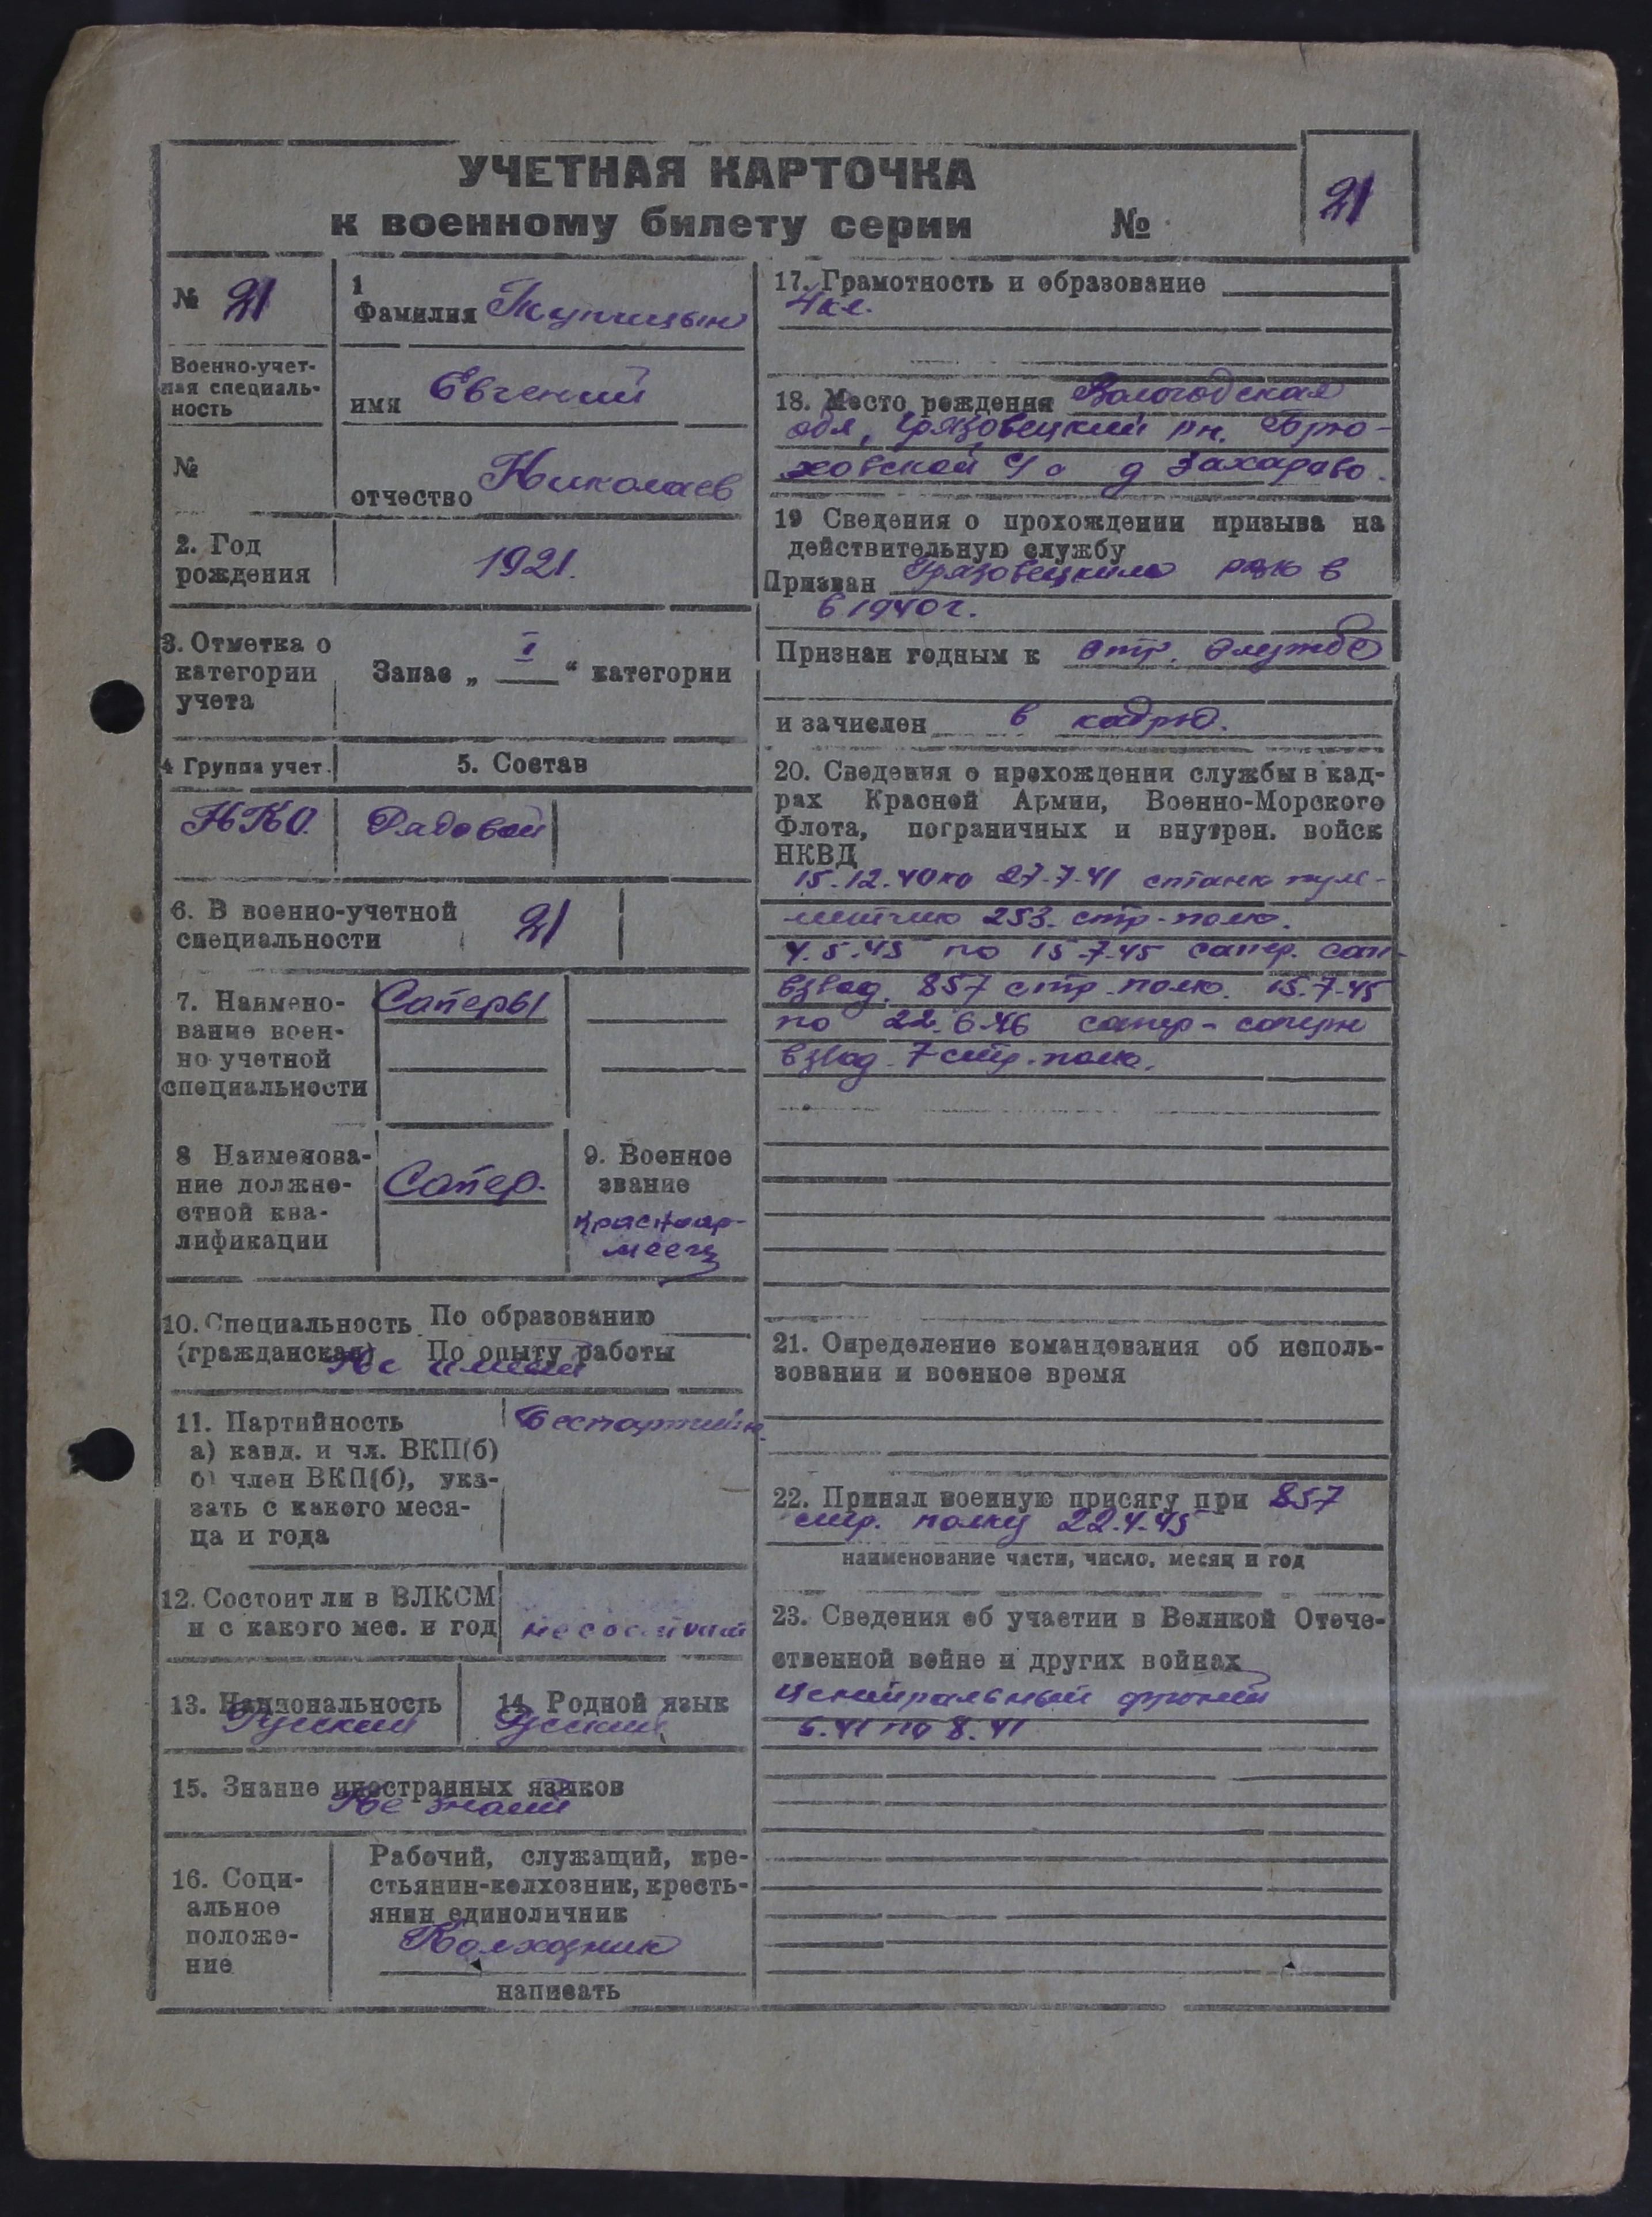 УЧЕТНАЯ КАРТОЧКА
к военному билету серии №
21
№ 21
Военно-учет-
ная специаль-
ность
№
1
Фамилия
имя Евгений
отчество Николаев
2. Год
рождения
1921.
3. Отметка о
категории
учета
Запас „ I “ категории
4 Группа учет.
5. Состав
НКО.
Рядовой
6. В военно-учетной
специальности
21
7. Наимено-
вание воен-
но-учетной
специальности
Саперы
8 Наименова-
ние должно-
стной ква-
лификации
Сапер.
9. Военное
звание
красноар-
меец
10. Специальность По образованию
(гражданская) По опыту работы
Не имеет
11. Партийность
а) канд. и чл. ВКП(б)
б) член ВКП(б), ука-
зать с какого меся-
ца и года
Беспартийн.
12. Состоит ли в ВЛКСМ
и с какого мес. и год
не состоит
13. Национальность
Русский
14. Родной язык
Русский
15. Знание иностранных языков
Не знает
16. Соци-
альное
положе-
ние
Рабочий, служащий, кре-
стьянин-колхозник, кресть-
янин единоличник
Колхозник
написать
17. Грамотность и образование
4 кл.
18. Место рождения Вологодская
обл, Грязовецкий рн. Брю-
ховской с/с д Захарово.
19 Сведения о прохождении призыва на
действительную службу
Призван Грязовецким рвк в
в 1940 г.
Признан годным к стр. службе
и зачислен в кадры.
20. Сведения о прохождении службы в кад-
рах Красной Армии, Военно-Морского
Флота, пограничных и внутрен. войск
НКВД
15.12.40 по 27-7-41 станк пуле-
253. стр-полк.
4.5.45 по 15-7-45 сапер. сап-
взвод. 857 стр-полк. 15.7-45
по 22.6-46 сапер-саперн
взвод-7 стр.полк.
21. Определение командования об исполь-
зовании и военное время
22. Принял военную присягу при 857
стр. полку 22.4.45
наименование части, число, месяц и год
23. Сведения об участии в Великой Отече-
ственной войне и других войнах
Центральный фронт
6.41 по 8.41